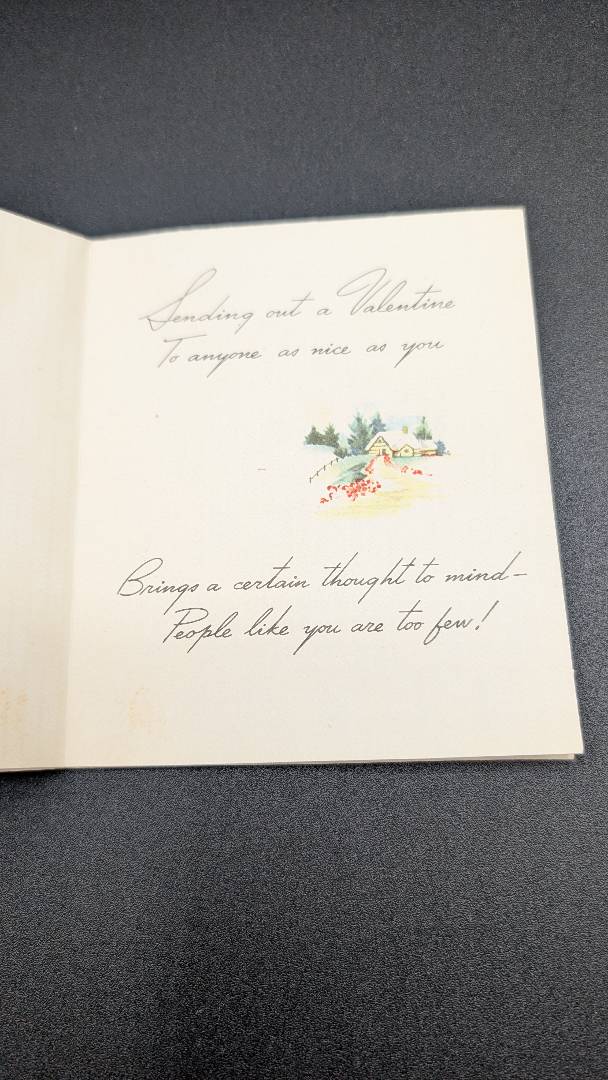 Sending out a Valentine
To anyone as nice as you
Brings a certain thought to mind-
People like you are too few!